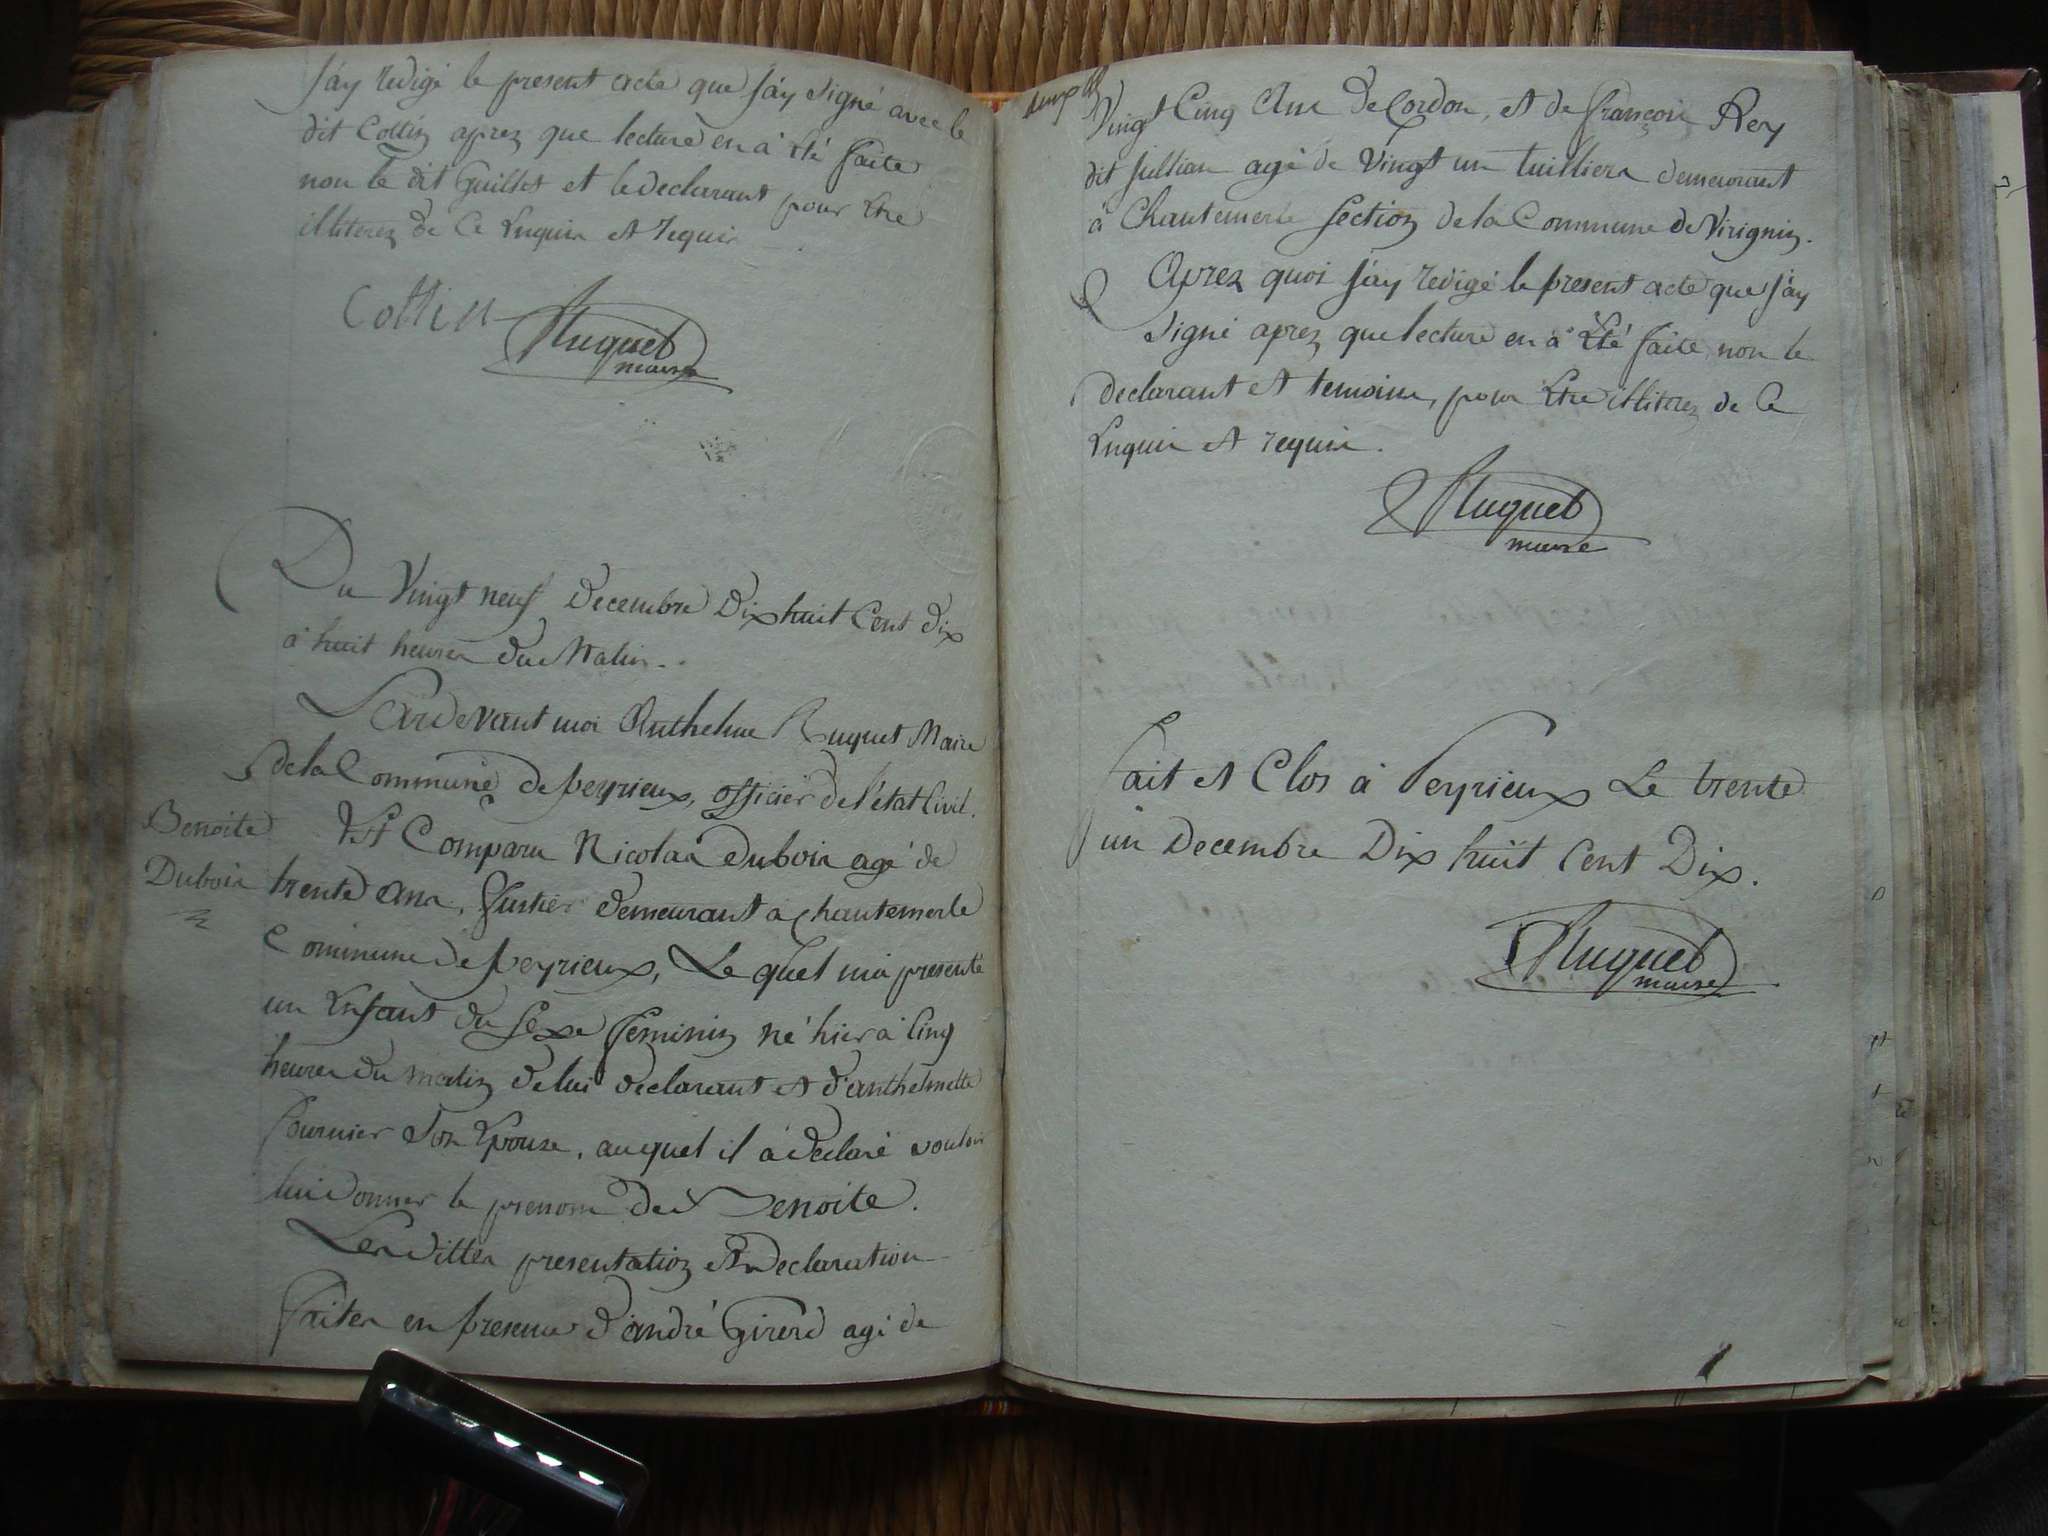 j'ay redigé le present acte que j'ay signé avec le
dit Cottin aprez que lecture en à Eté faite
non le dit Guillet et le declarant pour Etre
illiterez de Ce Enquis et requis
Cottin
Huguet
maire
Du Vingt neuf Decembre Dix huit Cent dix
à huit heures du Matin.
Pardevant moi Anthelme Huguet Maire
de la Commune de peyrieux, officier de l'état Civil.
Benoite
Dubois
Est Comparu Nicolas Dubois agé de
trente ans, fustier demeurant à chantemerle
Commune de peyrieux, Le quel m'a presenté
un Enfant du Sexe feminin né hier à Cinq
heures du matin de lui declarant et d'anthelmette
fournier Son Epouse, auquel il à declaré vouloir
lui donner le prenom de Benoite.
Lesdittes presentation et Declaration
faites en presence d'andré Girerd agé de
Vingt Cinq Ans de Cordon, et de françois Rey
dit jullian agé de Vingt un tuilliers demeurant
à Chantemerle Section de la Commune de Virignin.
Aprez quoi j'ay redigé le present acte que j'ay
signé aprez que lecture en à Eté faite, non le
declarant et temoins, pour Etre illiterez de Ce
Enquis et requis.
Huguet
maire
fait et Clos à Peyrieux Le trente
un Decembre Dix huit Cent Dix.
Huguet
maire